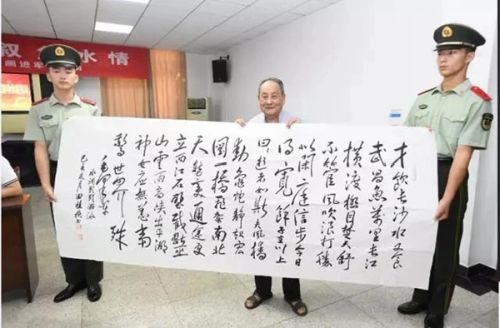 水情
画进军
才饮长沙水又食
武昌鱼萬里长江
横渡极目楚天舒
不管风吹浪打胜
似闲庭信步今日
得宽馀子在川上
曰逝者如斯夫风樯
动龟蛇静起宏
图一桥飞架南北
天堑变通途更
立西江石壁截断巫
山云雨高峡出平湖
神女应无恙当
惊世界殊
毛泽东
水调歌头游泳